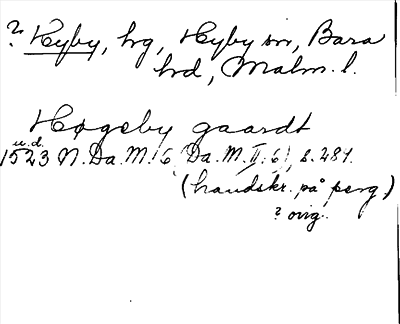 ? Hyby, hg, Hyby sn, Bara
hd, Malm. l.
Høgeby gaardt
u.d.
1523 N. Da. M. 6 (Da. M. II, 6), s. 281.
(handskr. på perg.)
? orig.